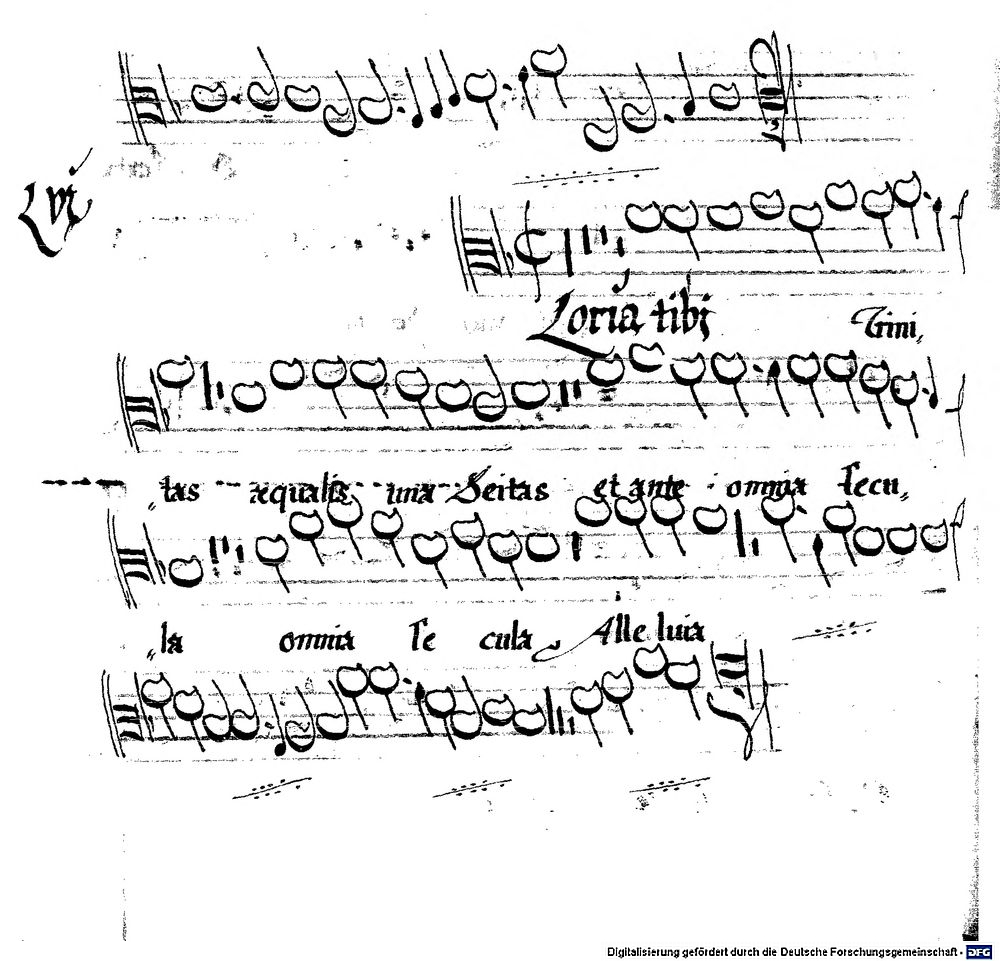 Lvi
Loria tibi Trini,,
,,tas æqualis, una Deitas et ante omnia secu,,
,,la omnia se cula Alleluia
Digitalisierung gefördert durch die Deutsche Forschungsgemeinschaft - DFG